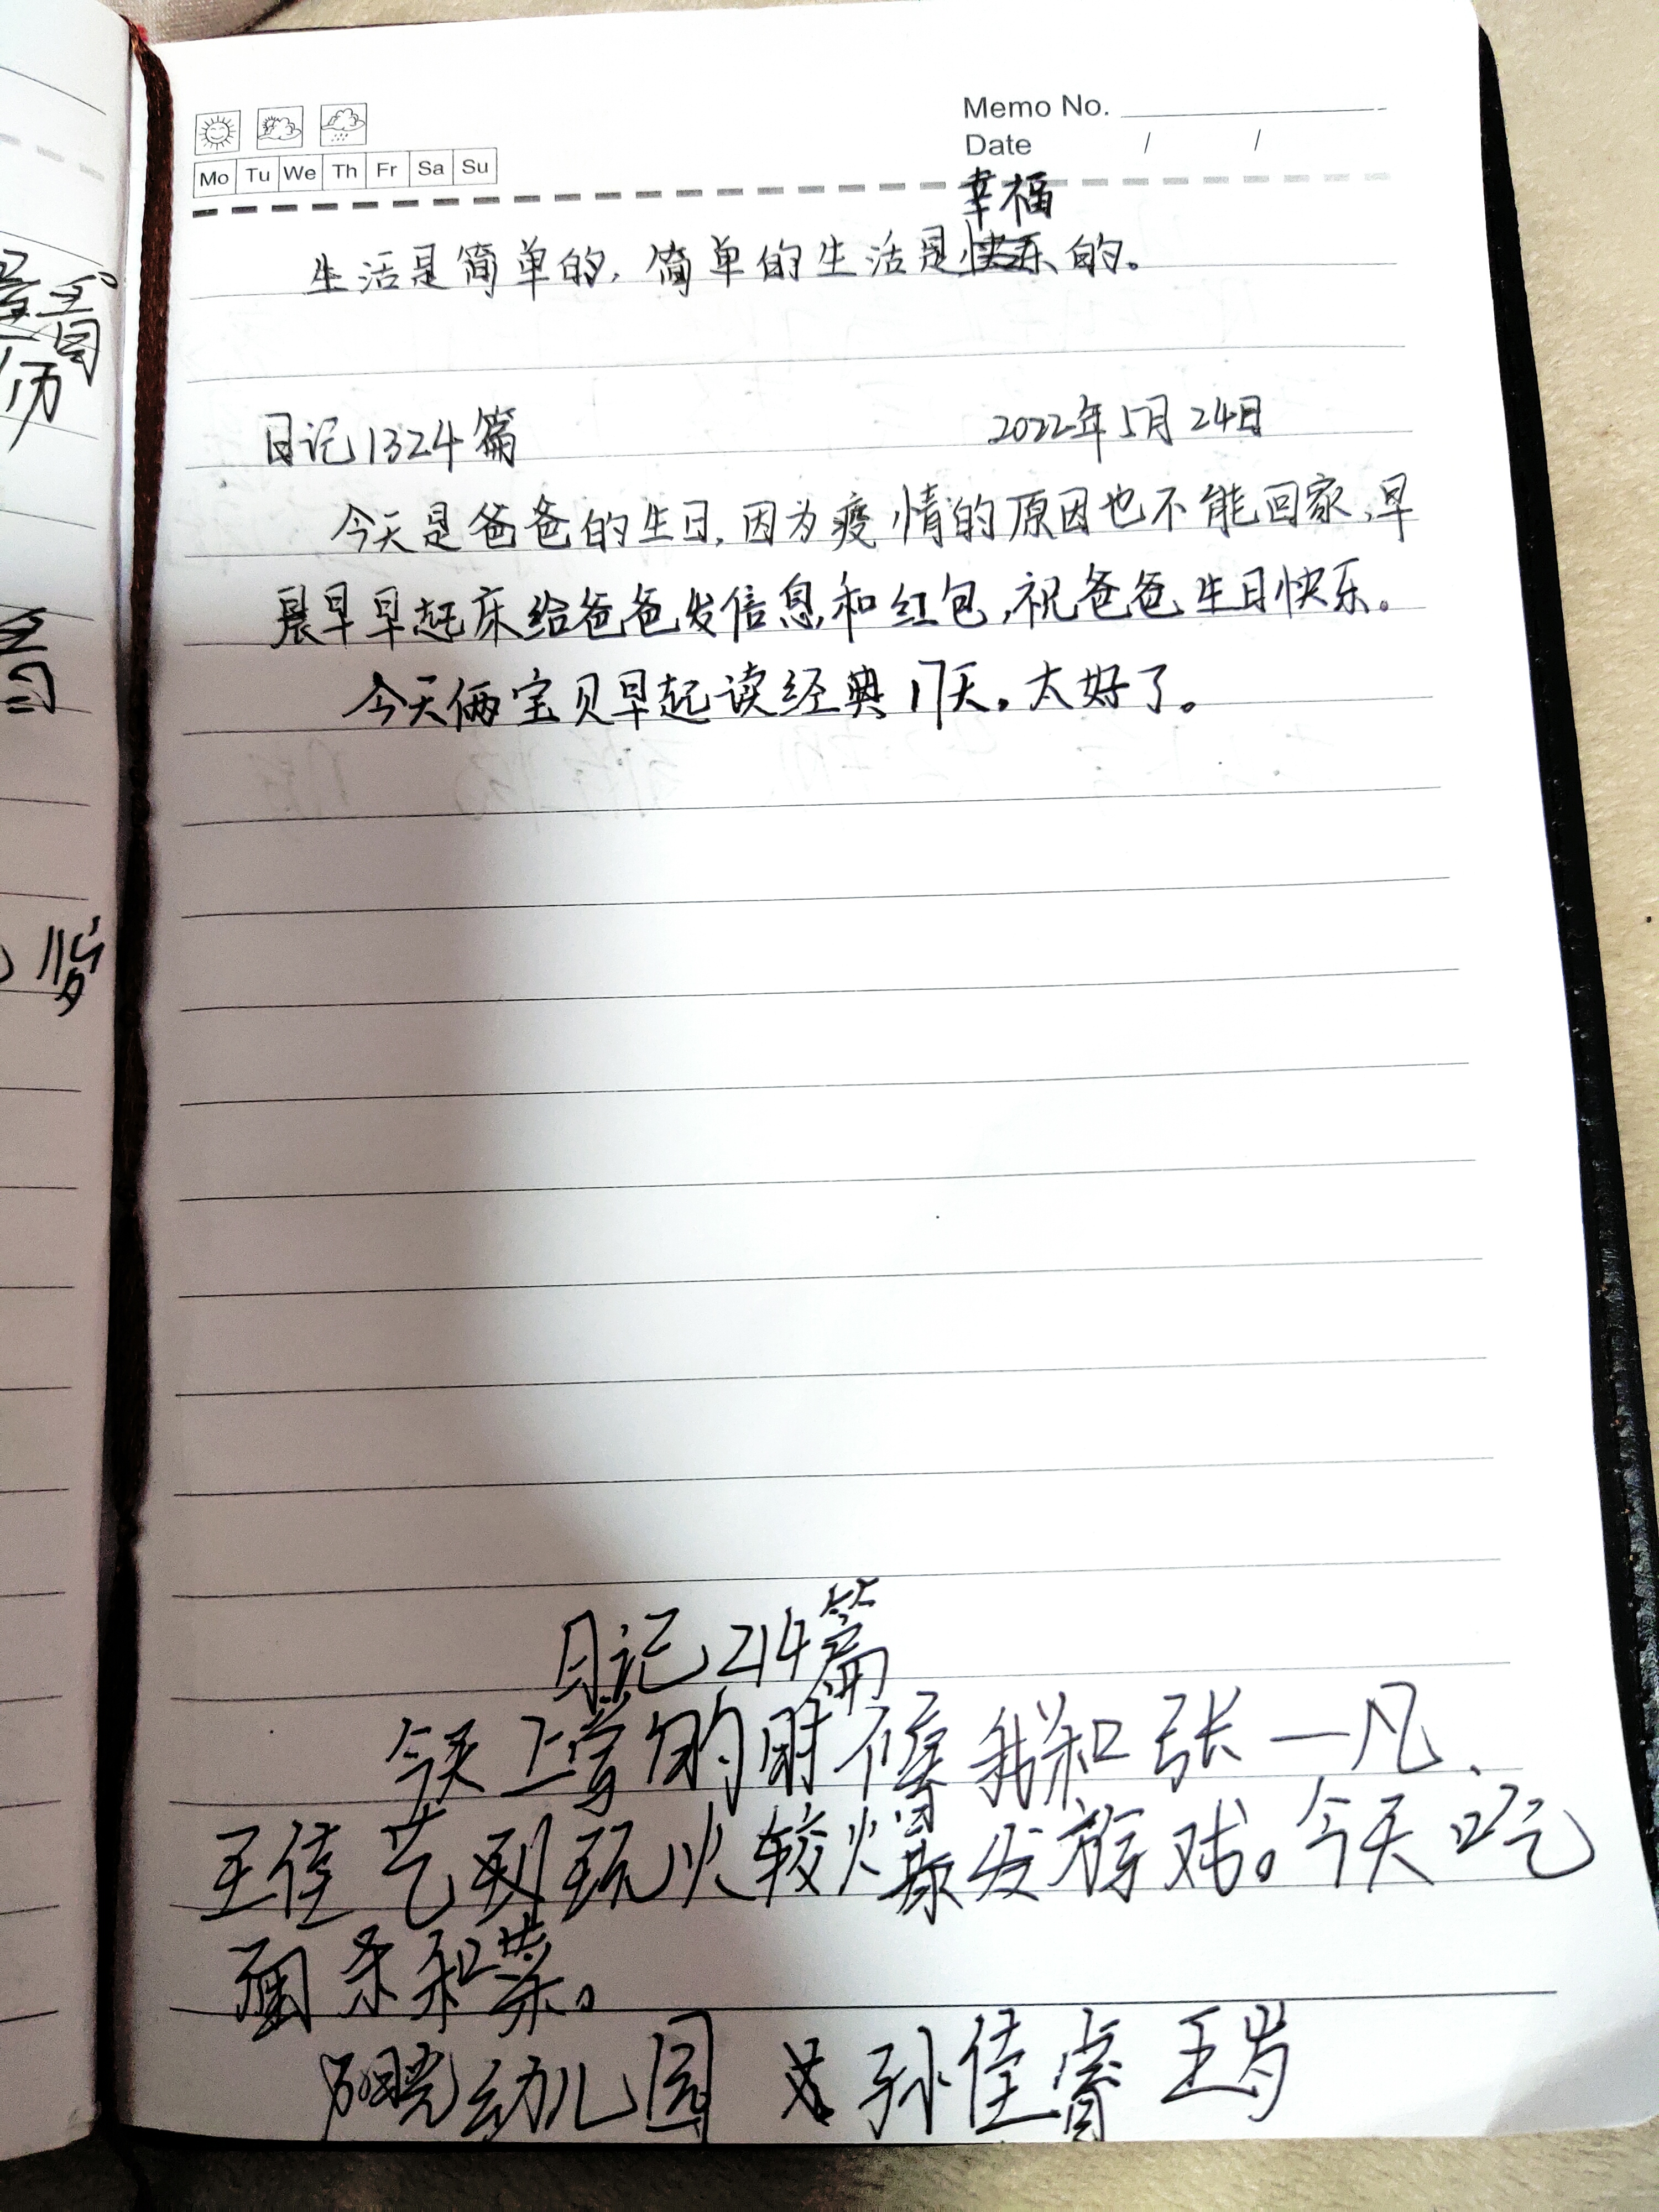 Memo No.
Date / /
Mo Tu We Th Fr Sa Su
幸福
生活是简单的，简单的生活是快乐的。
日记1324篇 2022年5月24日
今天是爸爸的生日，因为疫情的原因也不能回家，早
晨早早起床给爸爸发信息和红包，祝爸爸生日快乐。
今天俩宝贝早起读经典17天。太好了。
日记214篇
今天上学的时候我和张一凡、
王佳艺到玩火较爆发游戏。今天吃
面条和菜。
阳晓幼儿园 孙佳睿 五岁